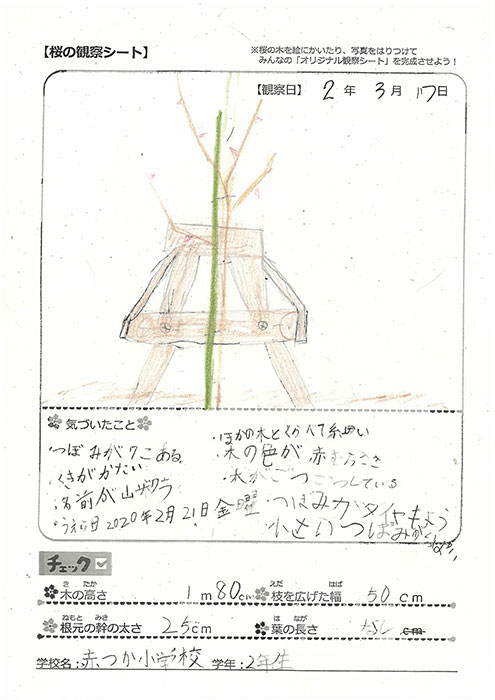 【桜の観察シート】
※桜の木を絵にかいたり、写真をはりつけて
みんなの「オリジナル観察シート」を完成させよう！
【観察日】 2年 3月 17日
気づいたこと
・つぼみが7こある
・くきがかたい
・名前が山ザクラ
・うえた日2020年2月21日金曜
・ほかの木とくらべて細い
・木の色が赤むらさき
・木がごつごつしている
・つぼみがダイヤもよう
小さいつぼみが
チェック
木の高さ 1m80cm
枝を広げた幅 50cm
根元の幹の太さ 25cm
葉の長さ なし cm
学校名：赤つか小学校 学年：2年生